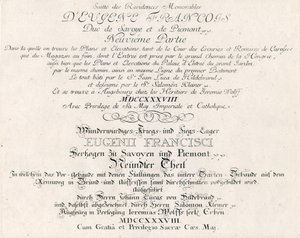 Suitte des Residences Memorables
D'EUGENE FRANCOIS
Duc de Savoye et de Piemont
Neuvieme Partie
Dans la quelle on trouve les Plans et Elevations, tant de la Cour des Ecuries et Remises de Carosses
que du Magazin au foin, dont l'Entrée est prise par le grand chemin de la
ainsi que les Plans et Elevations du Palais à l'Entrée du grand Jardin
par le meme chemin, avec un meme Ligne du premier Batiment
Le tout bâti par le Sr. Jean Luca de Hildebrand
et dessigné par le Sr. Salomon Kleiner
Et se trouve a Augsbourg chez les Heritiers de Jeremie Wolff
MDCCXXXVIII
Avec Privilege de Sa Maj. Imperiale et Catholique
Wunderwürdiges Kriegs- und Siegs-Lager
EUGENII FRANCISCI
Herzogen zu Savoyen und Piemont
Neundter Theil
In welchem das Vor-Gebäude mit denen Stallungen das untere Garten-Gebäude auf dem
Rennweeg in Grund und Aufrissen samt vorgebildet wird
Aufgeführt
durch Johann Lucas von Hildebrand
und daselbst abgezeichnet durch Salomon Kleiner
Augspurg in Verlegung Jeremias Wolffs seel. Erben
MDCCXXXVIII
Cum Gratiâ et Privilegio Sacræ Cæs. Maj.